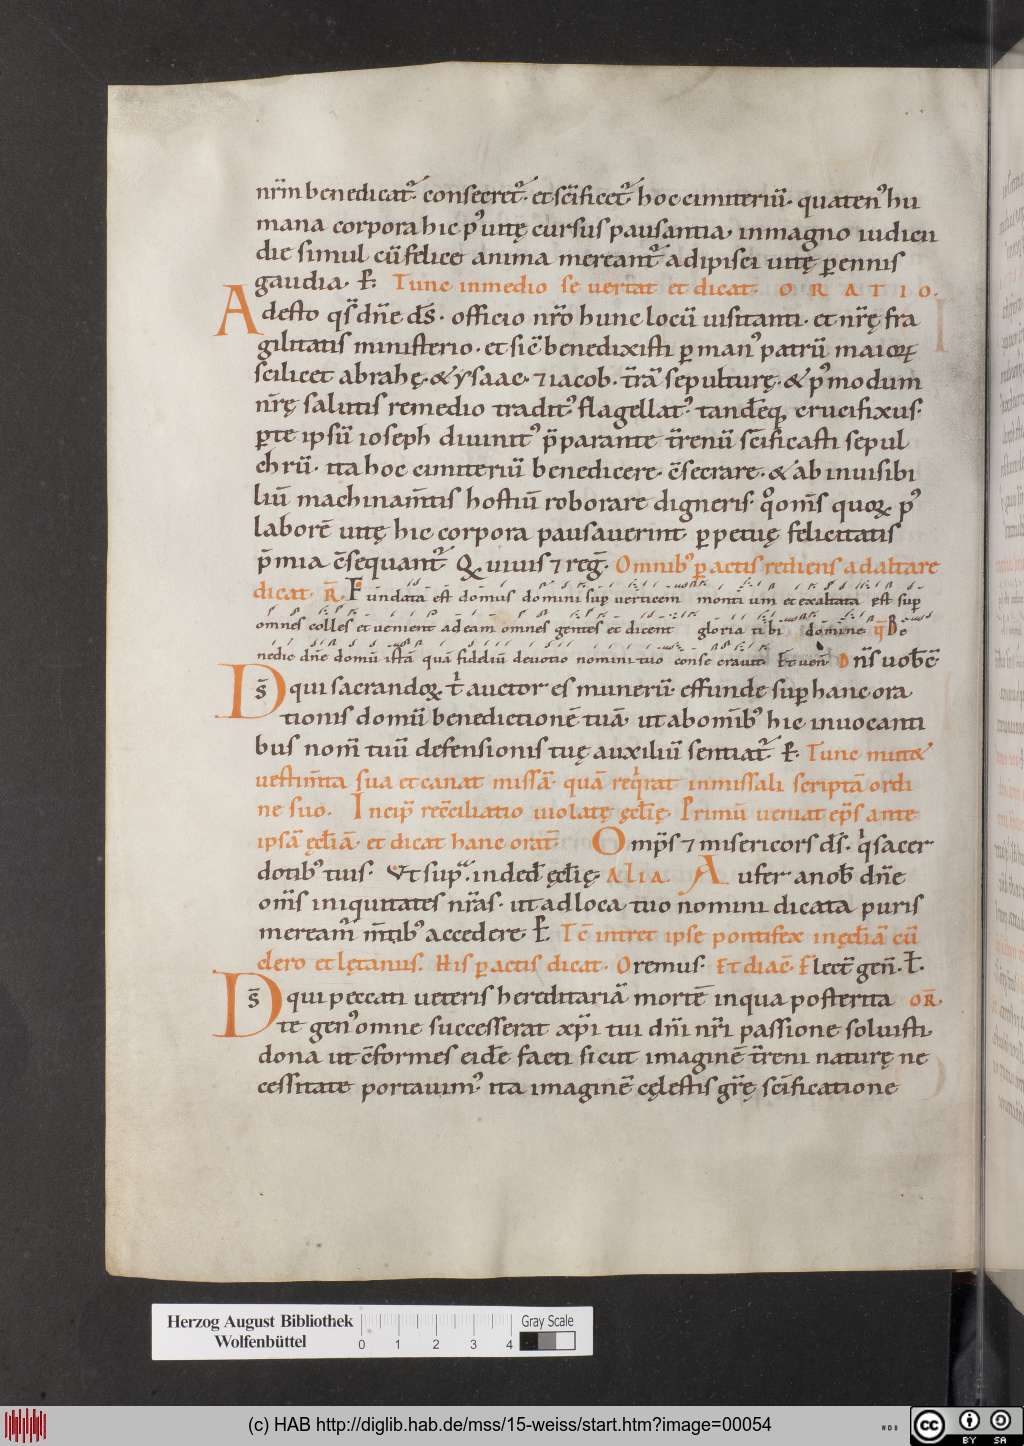 nr̄m benedicat᷑. consecret᷑. et sc̄ificet᷑ hoc cimiteriū. quaten᷒ hu
mana corpora hic p᷒ uitę cursus pausantia, in magno iudicii
die simul cū felice anima mereant᷑ adipisci uitę ꝑennis
gaudia. P̄. Tunc in medio se uertat et dicat. ORATIO.
Adesto qs̄ dn̄e ds̄. officio nr̄o hunc locū uisitanti. et nr̄ę fra
gilitatis ministerio. et sic̄ benedixisti ꝑ man᷒ patrū maioꝝ
scilicet abrahę. & ysaac. ⁊ iacob. tr̄ā sepulturę. & p᷒modum
nr̄ę salutis remedio tradit᷒ flagellat᷒ tandēq; crucifixus.
ꝑte ipsū ioseph diuinit᷒ p̄parante tr̄enū sc̄ificasti sepul
chrū. ita hoc cimiteriū benedicere. c̄secrare. & ab inuisibi
liū machinam̄tis hostiū roborare digneris. q᷒ om̄s quoꝝ p᷒
laborē uitę hic corpora pausauerint ꝑpetuę felicitatis
p̄mia c̄sequant᷑. Q uiuis ⁊ reg̅. Omnib᷒ ꝑactis rediens ad altare
dicat. R̄. Fundata est domus domini suꝑ uerticem montium et exaltata est suꝑ
omnes colles et uenient ad eam omnes gentes et dicent gloria tibi domine ꝟ Be
nedic dn̄e domū istā quā
D̄s qui sacrandoꝝ tⁱ auctor es munerū. effunde suꝑ hanc ora
tionis domū benedictionē tuā. ut ab om̄ib᷒ hic inuocanti
bus nom̄ tuū defensionis tuę auxiliū sentiat᷑. P̄. Tunc mittat
uestim̄ta sua et canat missā. quā reqⁱrat in missali scriptā ordi
ne suo. Incip̄ rec̄ciliatio uiolatę ęcl̄ię. Primū ueniat ep̄s ante
ipsā ęcl̄iā. et dicat hanc orat̄. Omp̄s ⁊ misericors ds̄. qⁱ sacer
dotib᷒ tuis. Vt supᵃ. in ded̄ ęcl̄ię. alia. Aufer a nob̄ dn̄e
om̄s iniquitates nr̄as. ut ad loca tuo nomini dicata puris
meream᷑ m̄tib᷒ accedere. P̄. Tc̄ intret ipse pontifex in ęcl̄iā cū
clero et lętaniis. His ꝑactis dicat. Oremus. Et diac̄. Flect̄ gen̄. L̄.
D̄s qui peccati ueteris hereditariā mortē in qua posterita OR̄.
te gen᷒ omne successerat xp̄i tui dn̄i nr̄i passione soluisti.
dona ut c̄formes eidē facti sicut imaginē tr̄eni naturę ne
cessitate portauim᷒. ita imaginē cęlestis gr̄ę sc̄ificatione
Herzog August Bibliothek
Wolfenbüttel
0 1 2 3 4
Gray Scale
(c) HAB http://diglib.hab.de/mss/15-weiss/start.htm?image=00054
cc BY SA